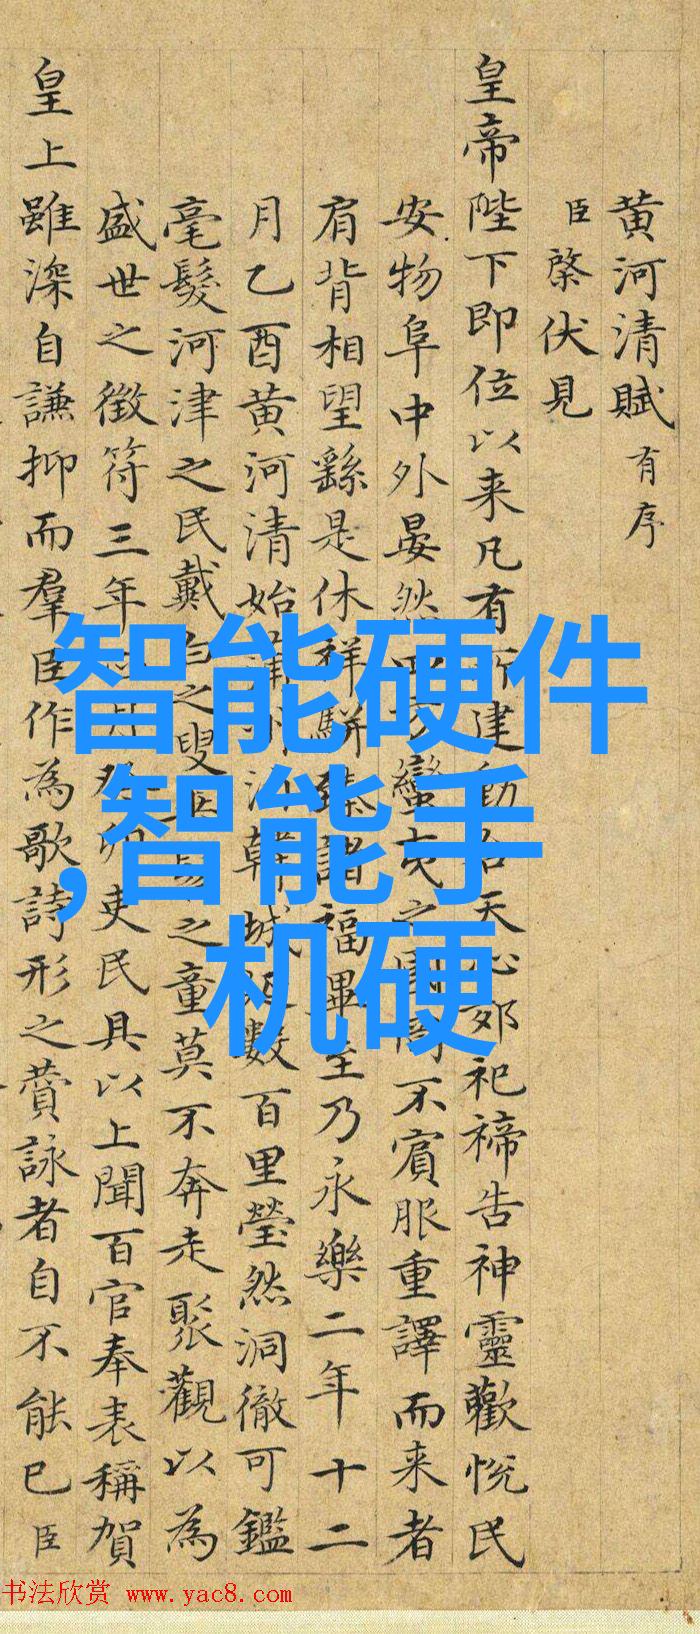 黄河清賦有序
臣棨伏見
皇帝陛下即位以来凡有所建動合天心郊祀禘告神靈歡悦民
安物阜中外晏然四方蠻夷之國罔不賓服重譯而来者
肩背相望繇是休祥駢臻諸福畢至乃永樂二年十二
月乙酉黄河清始韓城數百里瑩然洞徹可鑑
毫髮河津之民戴白之叟之童莫不奔走聚觀以為
盛世之徵符三年月卯吏民具以上聞百官奉表稱賀
皇上雖深自謙抑而羣臣作為歌詩形之賛詠者自不能已臣
智能硬件
,智能手
机硬
书法欣赏 www.yac8.com